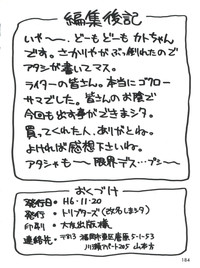 編集後記
いや〜、どーもどーもカトちゃん
です。さかりやがぶっ倒れたので
アタシが書いてマス。
ライターの皆さん。本当にゴクロー
サマでした。皆さんのお陰で
今回も出す事ができましタ。
買ってくれた人、ありがとね。
よければ感想下さいね。
アタシゃも〜限界デス…プシ〜
おくづけ
発行日・H6・11・20
発行・トリプターズ(改名しましタ)
印刷・大友出版様
連絡先・〒813 福岡市東区唐原5-1-53
川瀬アパート205 山本方
164